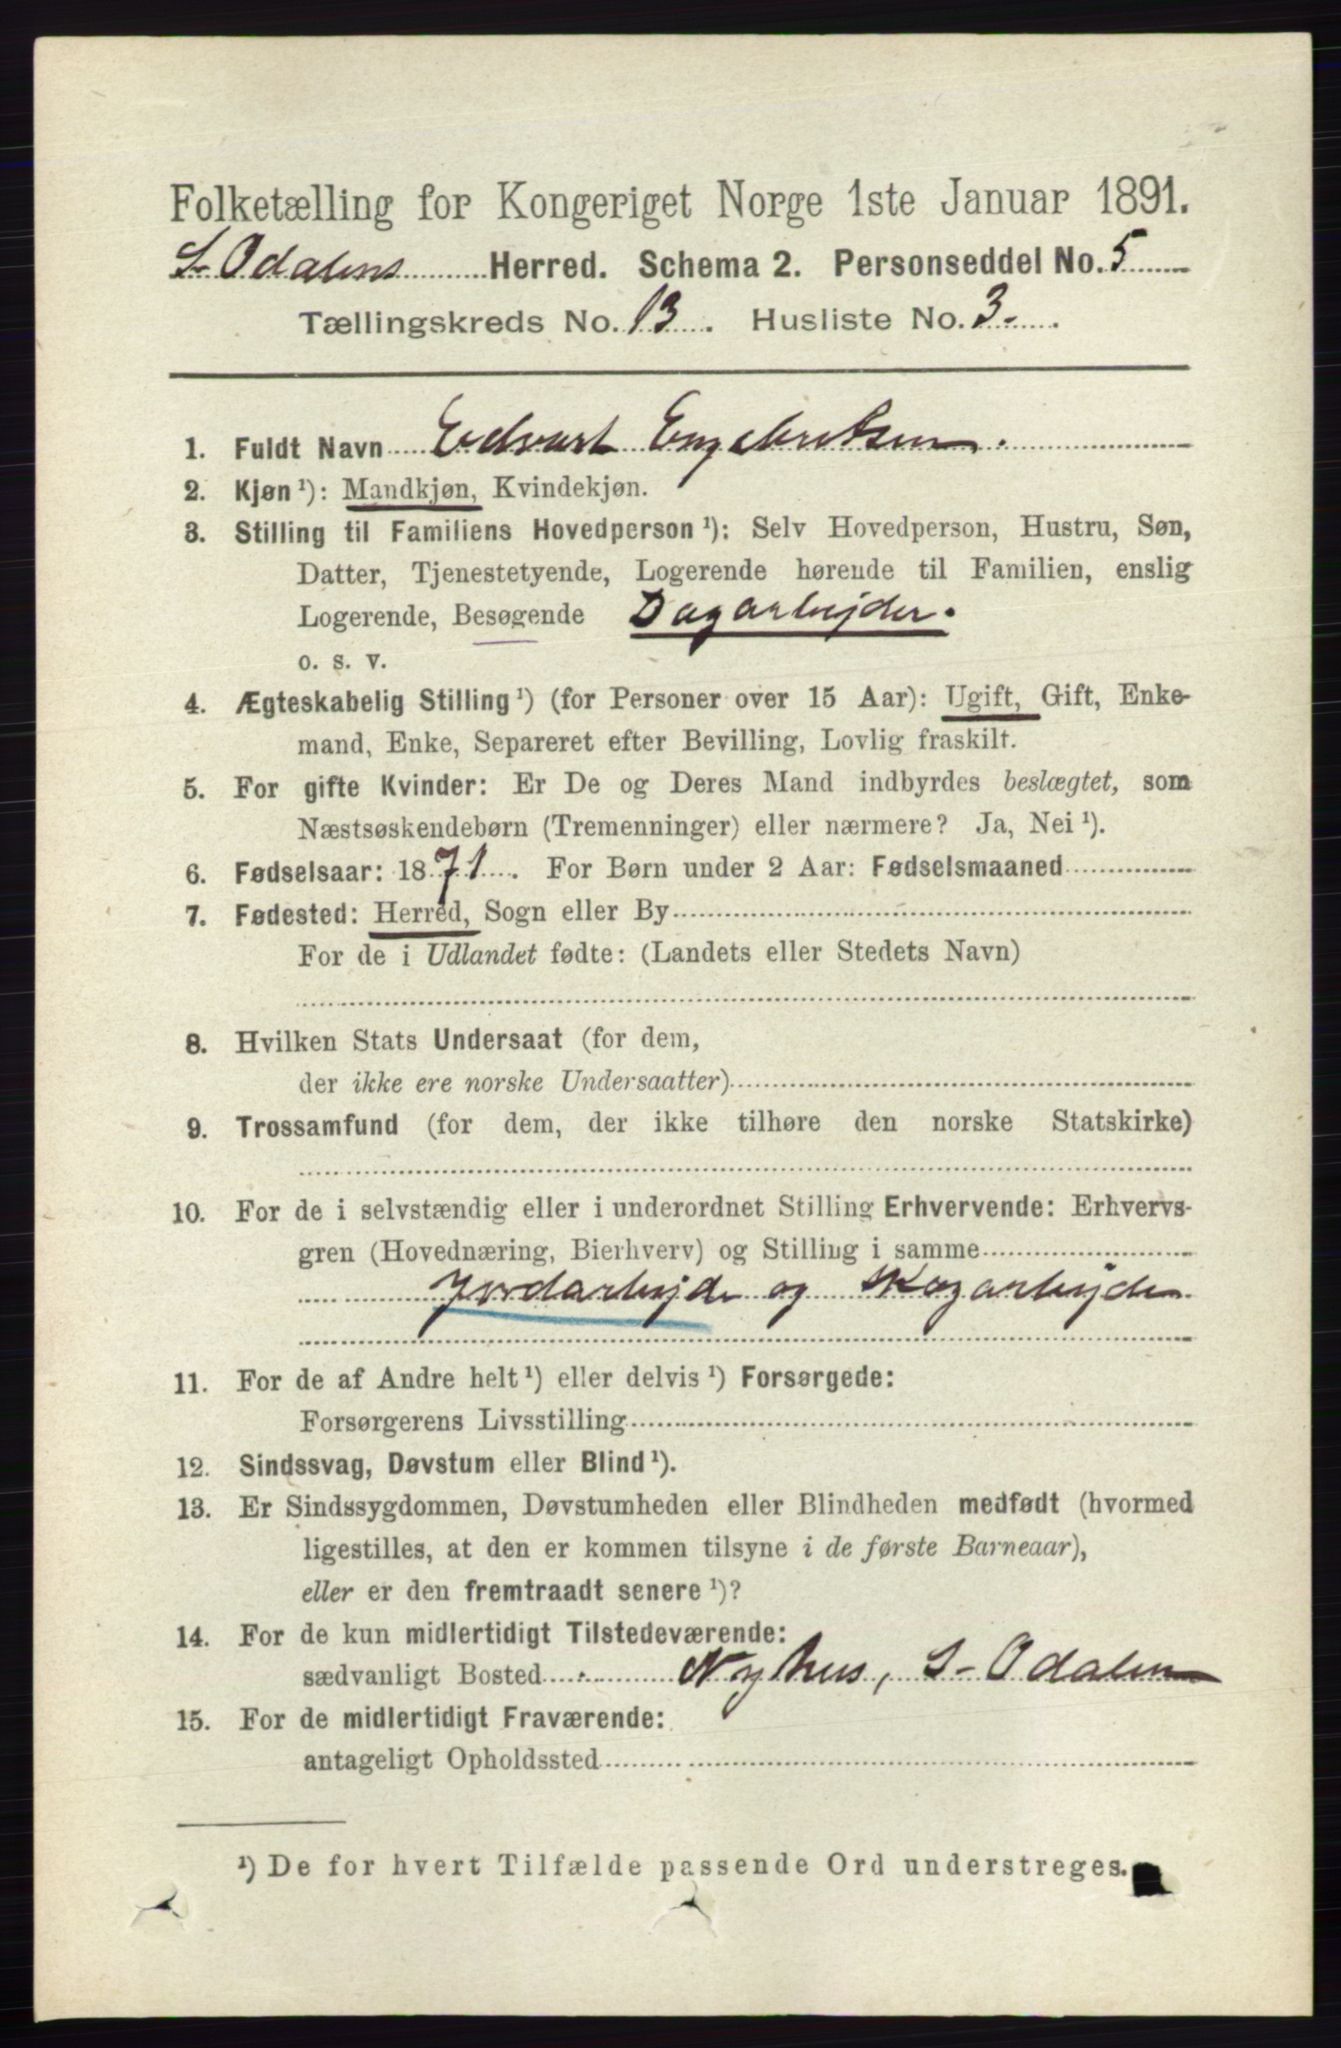 Folketælling for Kongeriget Norge 1ste Januar 1891.
S-Odalens Herred. Schema 2. Personseddel No. 5
Tællingskreds No. 13. Husliste No. 3.
1. Fuldt Navn Edvart Engebretsen.
2. Kjøn ¹): Mandkjøn, Kvindekjøn.
3. Stilling til Familiens Hovedperson ¹): Selv Hovedperson, Hustru, Søn,
Datter, Tjenestetyende, Logerende hørende til Familien, enslig
Logerende, Besøgende Dagarbejder.
o. s. v.
4. Ægteskabelig Stilling ¹) (for Personer over 15 Aar): Ugift, Gift, Enke-
mand, Enke, Separeret efter Bevilling, Lovlig fraskilt.
5. For gifte Kvinder: Er De og Deres Mand indbyrdes beslægtet, som
Næstsøskendebørn (Tremenninger) eller nærmere? Ja, Nei ¹).
6. Fødselsaar: 1871. For Børn under 2 Aar: Fødselsmaaned
7. Fødested: Herred, Sogn eller By
For de i Udlandet fødte: (Landets eller Stedets Navn)
8. Hvilken Stats Undersaat (for dem,
der ikke ere norske Undersaatter)
9. Trossamfund (for dem, der ikke tilhøre den norske Statskirke)
10. For de i selvstændig eller i underordnet Stilling Erhvervende: Erhvervs-
gren (Hovednæring, Bierhverv) og Stilling i samme
Jordarbejde og Skogarbejde
11. For de af Andre helt ¹) eller delvis ¹) Forsørgede:
Forsørgerens Livsstilling
12. Sindssvag, Døvstum eller Blind ¹).
13. Er Sindssygdommen, Døvstumheden eller Blindheden medfødt (hvormed
ligestilles, at den er kommen tilsyne i de første Barneaar),
eller er den fremtraadt senere ¹)?
14. For de kun midlertidigt Tilstedeværende:
sædvanligt Bosted Nyhus, S-Odalen
15. For de midlertidigt Fraværende:
antageligt Opholdssted
¹) De for hvert Tilfælde passende Ord understreges.